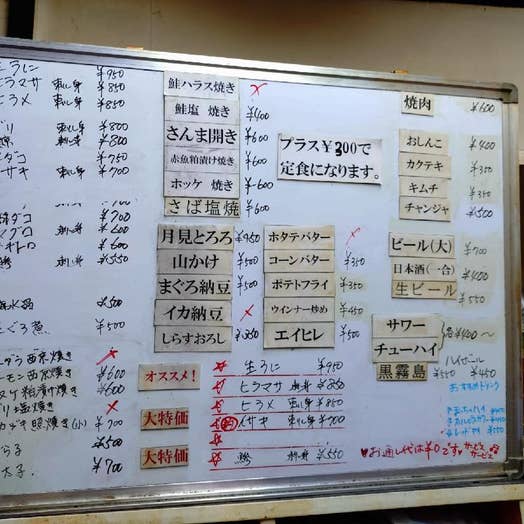 生うに ¥950
ヒラマサ 刺し身 ¥850
ヒラメ 刺し身 ¥850
刺し身 ¥800
刺し身 ¥800
ダコ ¥750
サキ 刺し身 ¥700
ダコ ¥700
グロ 刺し身 ¥600
トロ ¥600
刺し身 ¥550
¥500
まぐろ ¥500
西京焼き
ーモン西京焼き ¥600
粕漬け焼き ¥600
塩焼き ×
照焼き(小) ¥700
¥500
¥700
鮭ハラス焼き ×
鮭塩 焼き ¥400
さんま開き ¥600
赤魚粕漬け焼き ¥600
ホッケ 焼き ¥600
さば塩焼 ¥600
プラス¥300で
定食になります。
月見とろろ ¥950
山かけ
まぐろ納豆
イカ納豆 ×
しらすおろし
ホタテバター ×
コーンバター ¥350
ポテトフライ ¥350
ウインナー炒め ¥450
エイヒレ ¥500
オススメ!
大特価
大特価
生うに ¥950
ヒラマサ 刺し身 ¥850
ヒラメ 刺し身 ¥850
イサキ 刺し身 ¥700
鯵 刺し身 ¥550
焼肉 ¥600
おしんこ ¥400
カクテキ ¥350
キムチ ¥350
チャンジャ ¥500
ビール(大) ¥700
日本酒(一合) ¥400
生ビール ¥550
サワー
チューハイ
各¥400〜
黒霧島 ¥550
ハイボール ¥450
おすすめドリンク
♥お通し代は¥0です♥サービスサービス